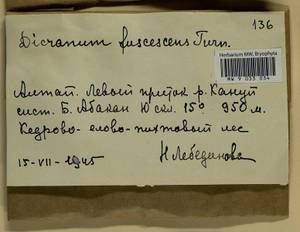 136
Dicranum fuscescens Turn.
Herbarium MW, Bryophyta
MW 9 033 034
Алтай. Левый приток р. Канул
сист. Б. Абакан Ю скл. 15° 950 м.
Кедрово-елово-пихтовый лес
15-VII-1945
Н Лебединова